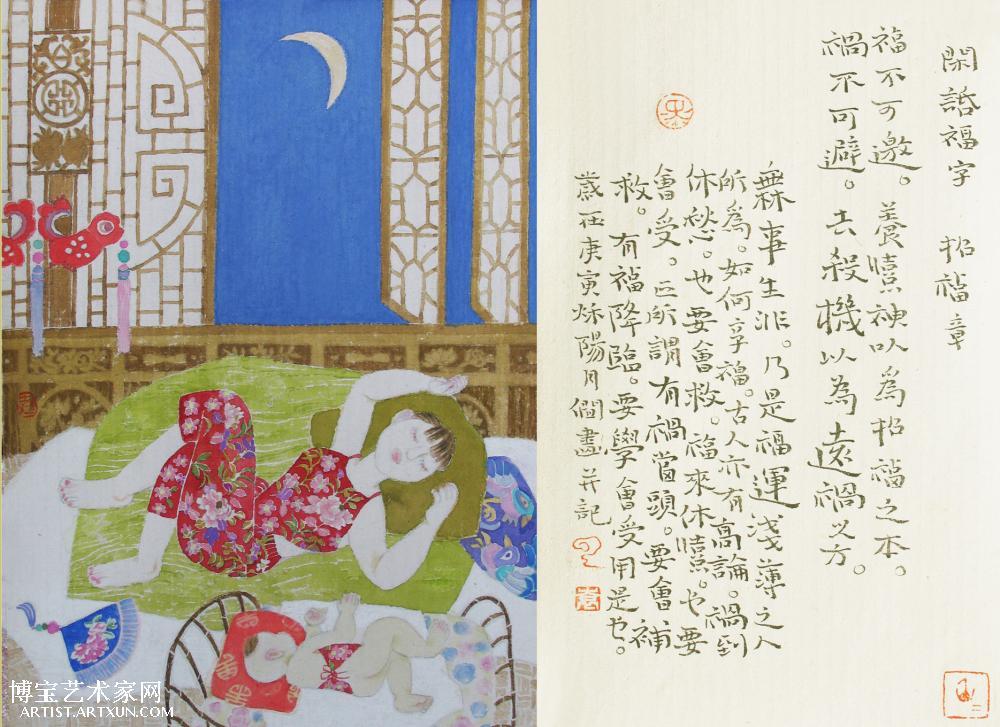 閑話福字 招福章
福不可邀。養喜神以為招福之本。
禍不可避。去殺機以為遠禍之方。
無事生非。乃是福運淺薄之人
所為。如何享福。古人亦有高論。禍到
休愁。也要會救。福來休喜。也要
會受。正所謂有禍當頭。要會補
救。有福降臨。要學會受用是也。
歲在庚寅秌陽月 畫并記
博宝艺术家网
ARTIST.ARTXUN.COM